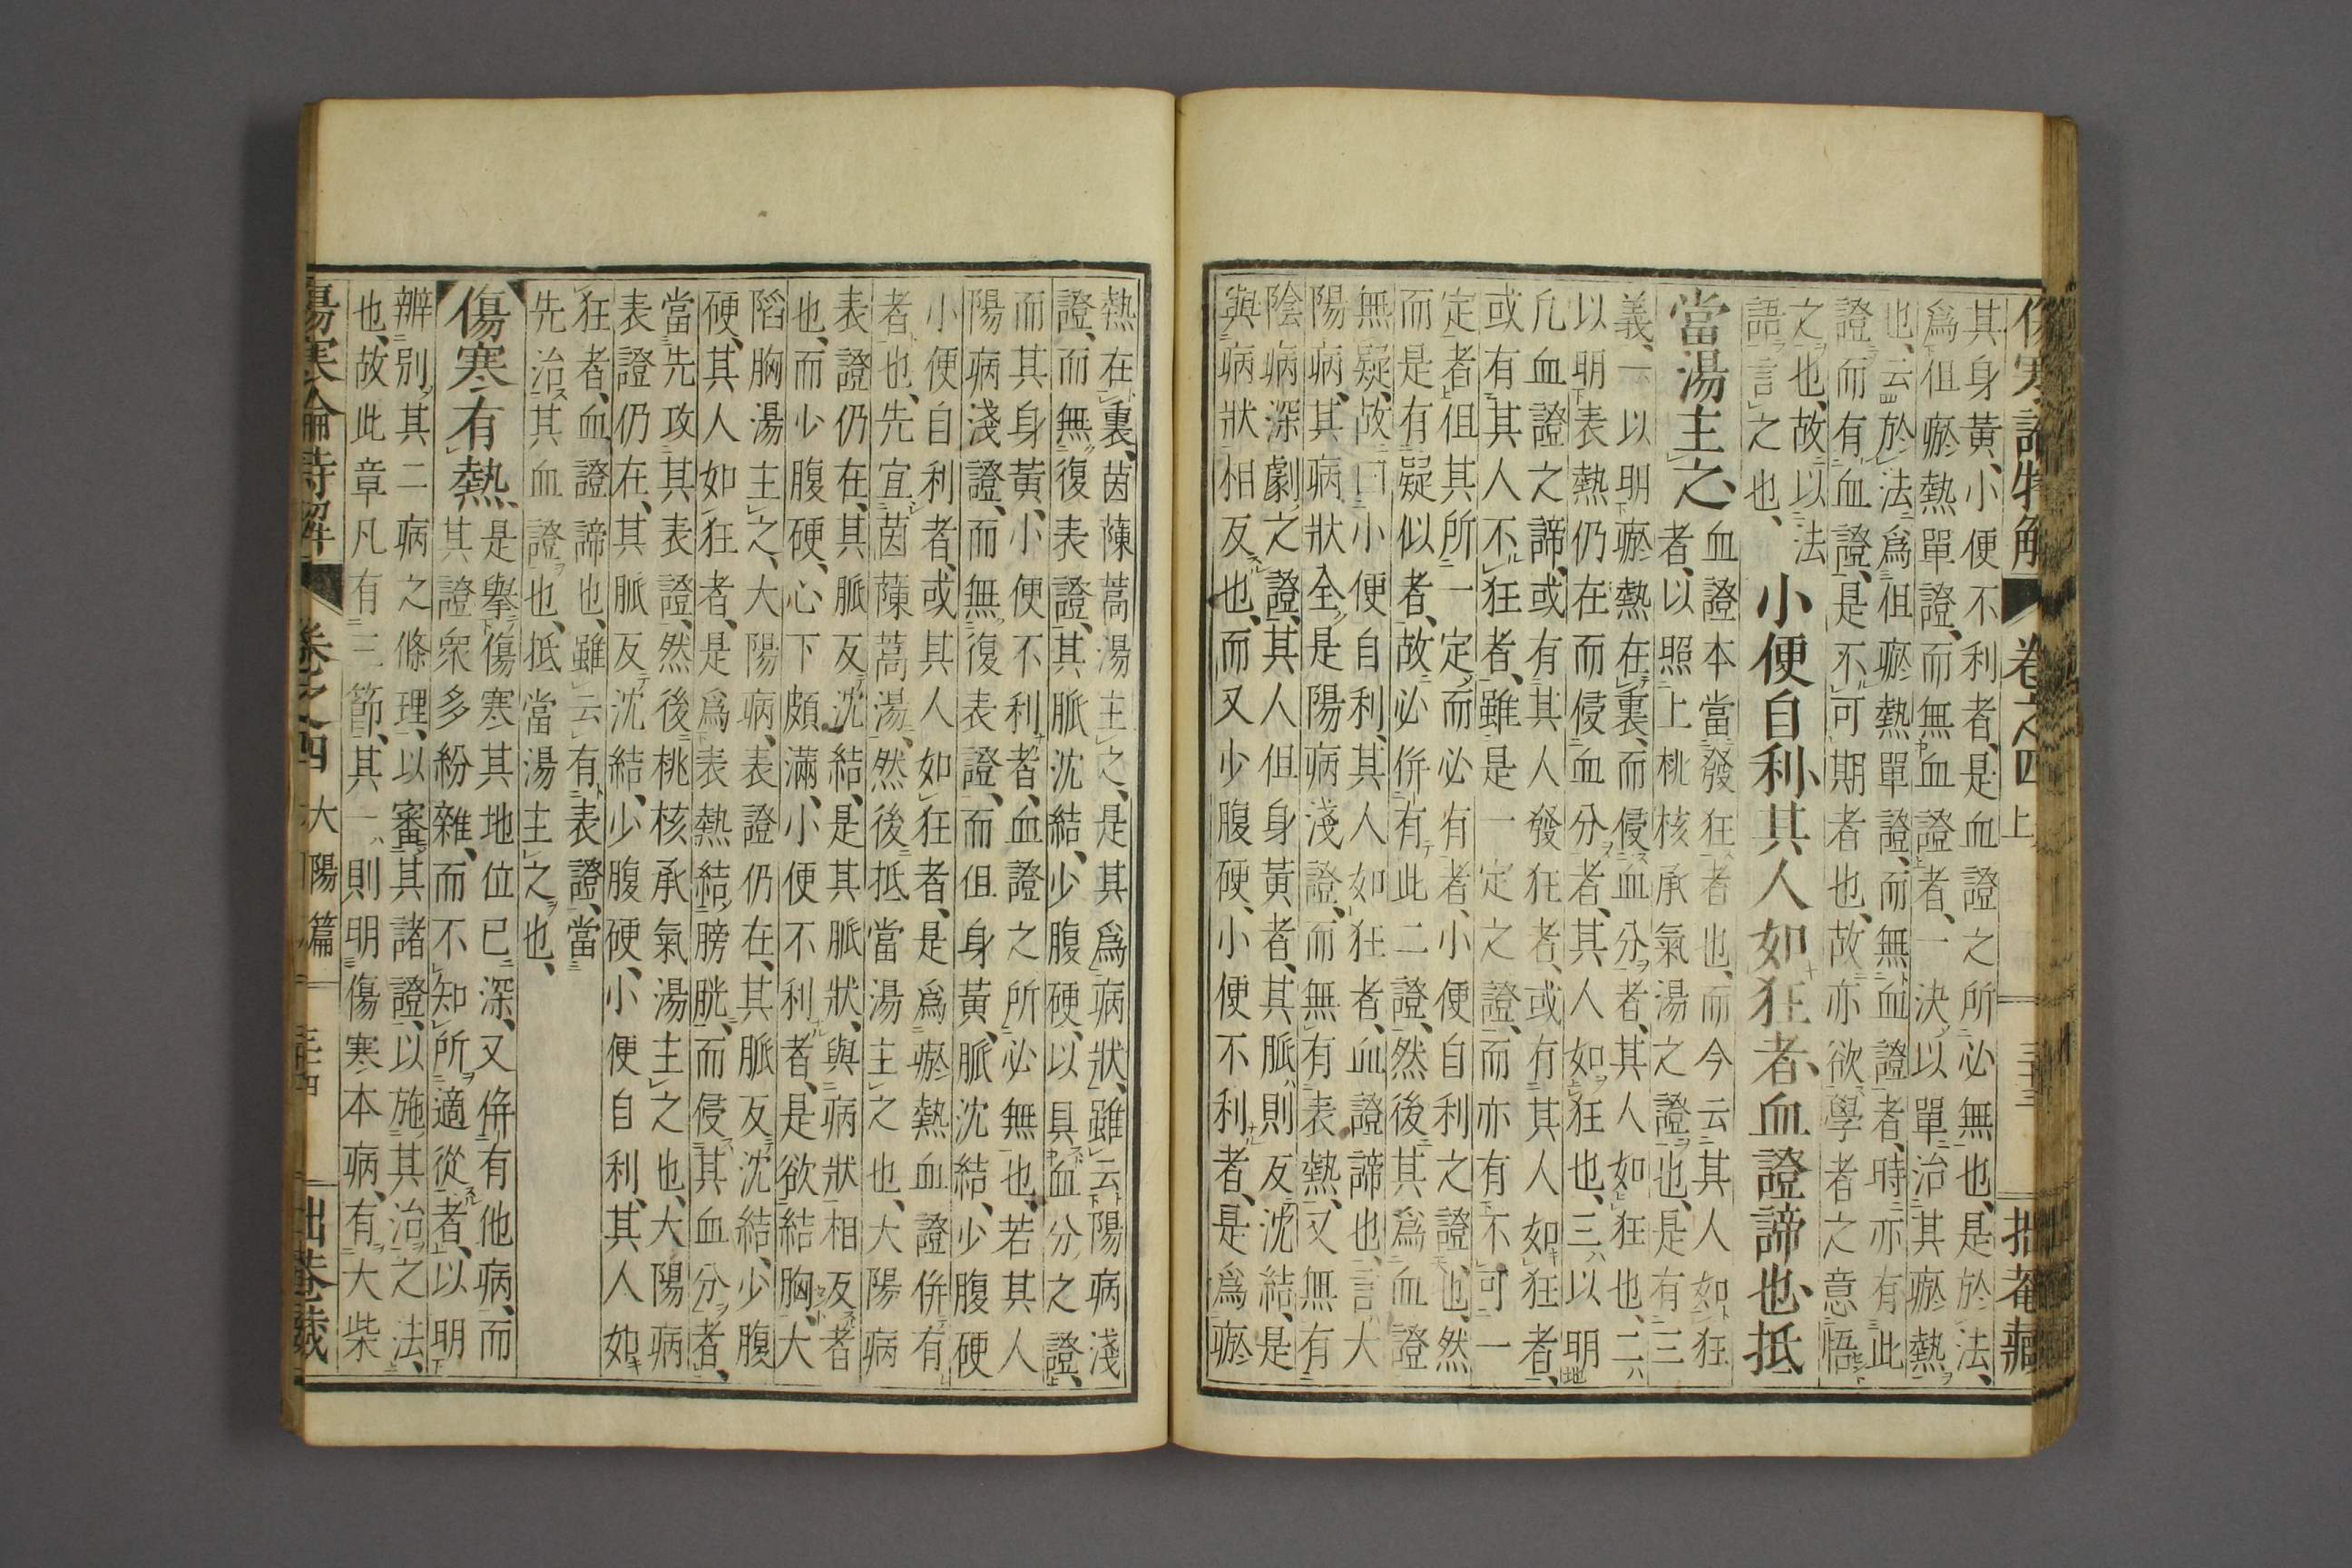 傷寒論特解 卷之四 上 三十三 拙菴藏
其身黃、小便不利者、是血證之所必無也、是於法、
爲但瘀熱單證、而無血證者、一決以單治其瘀熱
也、云於法爲但瘀熱單證、而無血證者、時亦有此
證而有血證、是不可期者也、故亦欲學者之意悟
之也、故以法
語言之也、
小便自利、其人如狂者、血證諦也、抵
當湯主之、
血證本當發狂者也、而今云其人如狂
者、以照上桃核承氣湯之證也、是有三
義、一以明瘀熱在裏、而侵血分者、其人如狂也、二
以明表熱仍在而侵血分者、其人如狂也、三以明
凡血證之諦、或有其人發狂者、或有其人如狂者、
或有其人不狂者、雖是一定之證、而亦有不可一
定者、但其所一定、而必有者、小便自利之證也、然
而是有疑似者、故必併有此二證、然後其爲血證
無疑、故曰小便自利、其人如狂者、血證諦也、言大
陽病、其病狀全是陽病淺證、而無有表熱、又無有
陰病深劇之證、其人但身黃者、其脈則反沈結、是
與病狀相反也、而又少腹硬、小便不利者、是爲瘀
熱在裏、茵蔯蒿湯主之、是其爲病狀、雖云陽病淺
證、而無復表證、其脈沈結、少腹硬、以具血分之證、
而其身黃、小便不利者、血證之所必無也、若其人
陽病淺證、而無復表證、而但身黃、脈沈結、少腹硬
小便自利者、或其人如狂者、是爲瘀熱血證併有
者也、先宜茵蔯蒿湯、然後抵當湯主之也、大陽病
表證仍在、其脈反沈結、是其脈狀、與病狀相反者
也、而少腹硬、心下頗滿、小便不利者、是欲結胸、大
陷胸湯主之、大陽病、表證仍在、其脈反沈結、少腹
硬、其人如狂者、是爲表熱結膀胱、而侵其血分者、
當先攻其表證、然後桃核承氣湯主之也、大陽病
表證仍在、其脈反沈結、少腹硬、小便自利、其人如
狂者、血證諦也、雖云有表證、當
先治其血證也、抵當湯主之也、
傷寒有熱、
是擧傷寒其地位已深、又併有他病、而
其證衆多紛雜、而不知所適從者、以明
辨別其二病之條理、以審其諸證、以施其治之法、
也、故此章凡有三節、其一、則明傷寒本病、有大柴
傷寒論特解 卷之四 大陽篇 三十四 拙菴藏